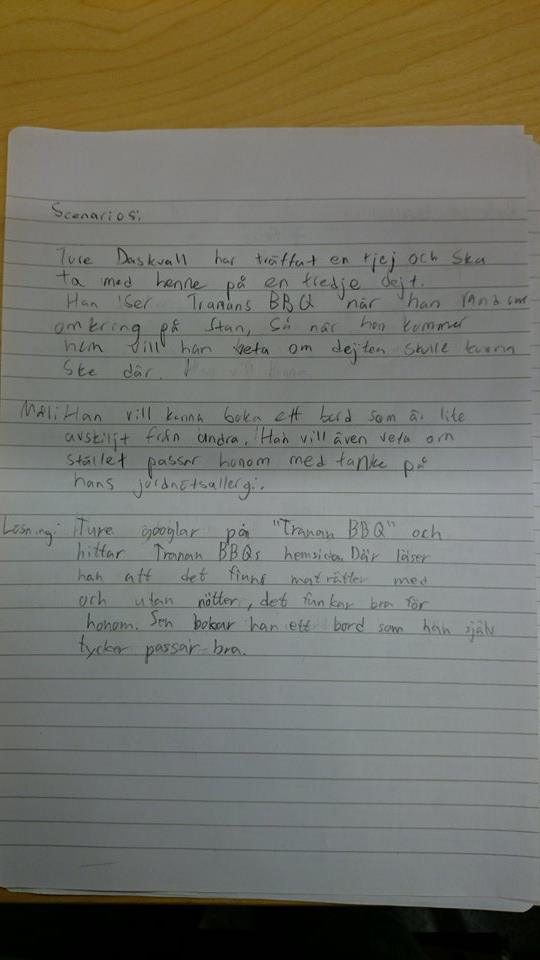 Scenarios:
Ture Daskvall har träffat en tjej och ska
ta med henne på en tredje dejt.
Han ser Tranans BBQ när han
omkring på stan, så när han kommer
hem vill han veta om dejten skulle kunna
ske där.
Mål: Han vill kunna boka ett bord som är lite
avskiljt från andra. Han vill även veta om
stället passar honom med tanke på
hans jordnötsallergi.
Lösning: Ture googlar på "Tranan BBQ" och
hittar Tranan BBQs hemsida. Där läser
han att det finns maträtter med
och utan nötter, det funkar bra för
honom. Sen bokar han ett bord som han själv
tycker passar bra.